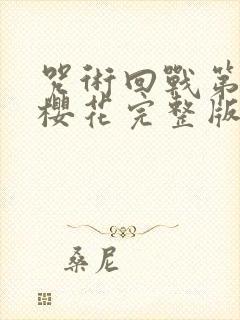 咒術回戰第
櫻花完整版
桑尼